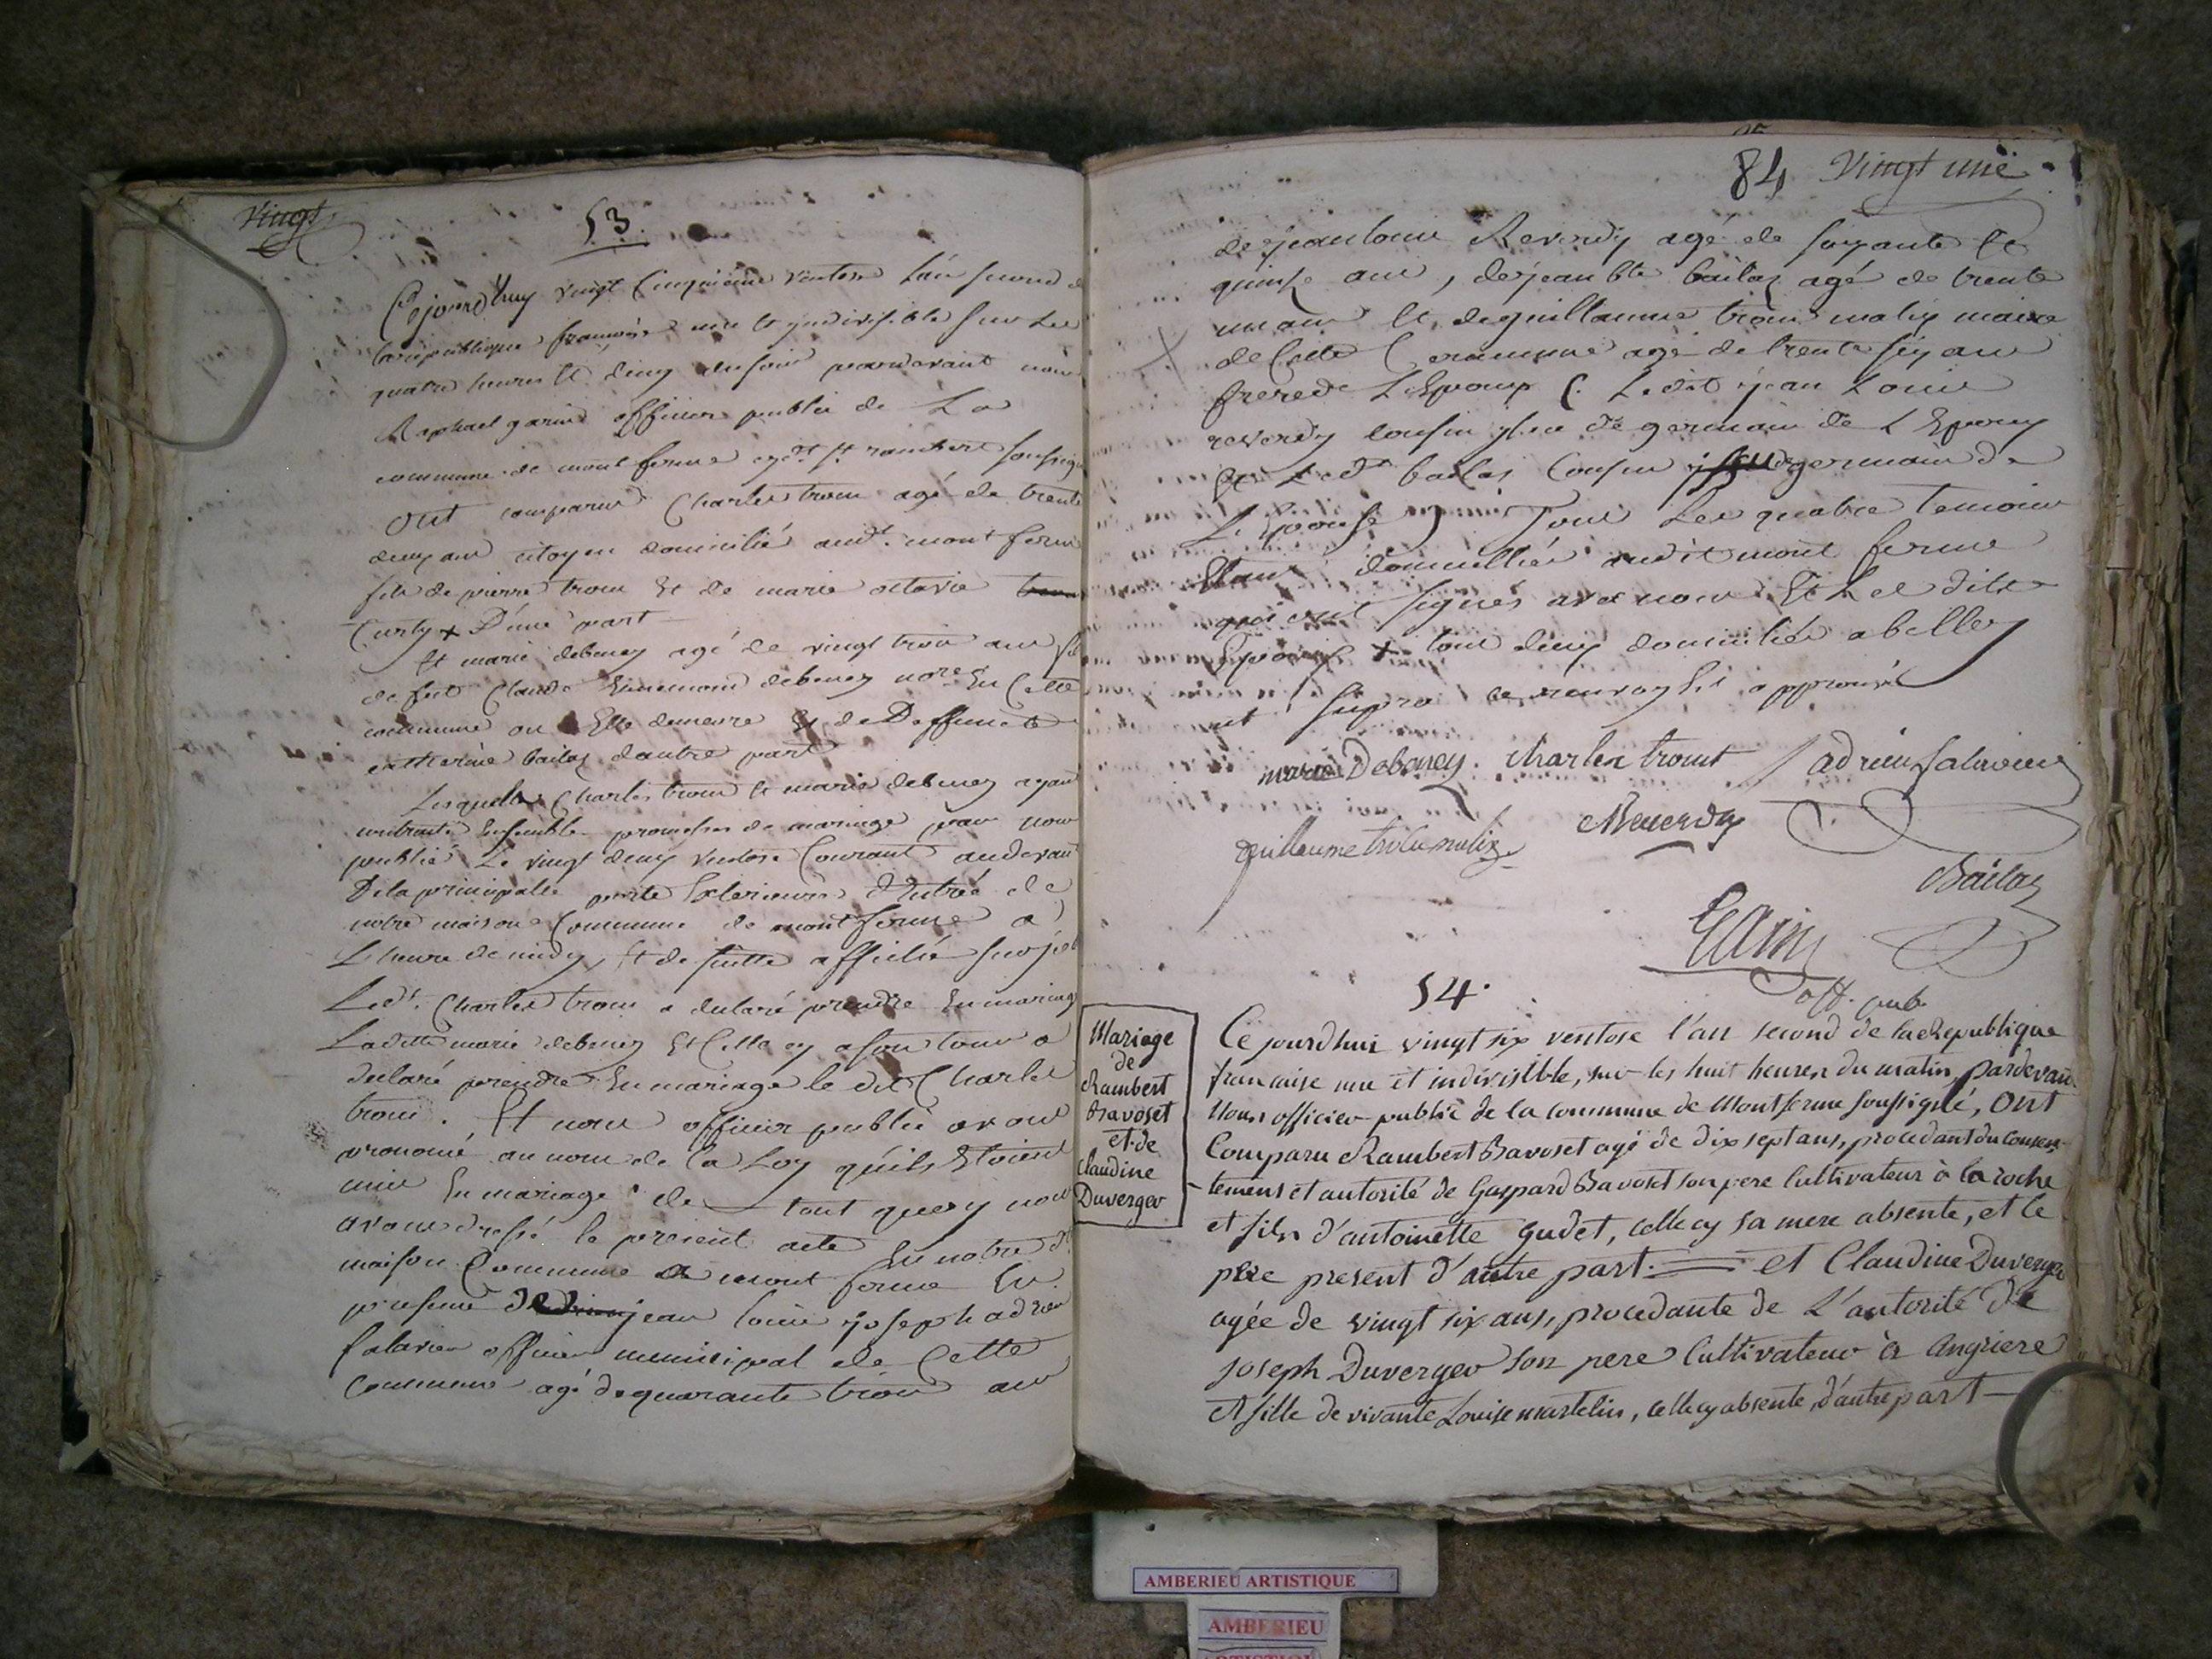 Vingt
53.
Cejourdhuy vingt Cinquieme ventose L'an second de
La republique francoise une et yndivisible sur Les
quatre heures et demy du soir pardevant nous
Raphael garin officier public de La
commune de mont ferme cydt st rambert soussigné
Ont comparus Charles trocu agé de trente
deux ans citoyen domicilié audt. mont ferme
fils de pierre trocu Et de marie octavie
Curty x D'une part
Et marie debeney agé de vingt trois ans fille
de feu Claude Ennemond debeney nore En Cette
commune ou Elle demeure Et de Deffuncte
catherine bailas d'autre part
Lesquels Charles trocu et marie debeney ayant
contracté Ensemble promesses de mariage par nous
publié Le vingt deux ventose Courant audevant
De la principalle porte Exterieure D'Entrée de
notre maison Commune de mont ferme a
L'heure de midy, Et de suitte affichée
Ledt. Charles trocu a declaré prendre En mariage
Ladite marie debeney Et Celle cy a son tour a
declaré prendre En mariage le dit Charles
trocu. Et nous officier public avons
prononcé au nom de la Loy qu'ils Etoient
unis En mariage de tout quoy nous
avons dressé le present acte En notre dt
maison Commune a mont ferme En
presence de jean louis joseph adrien
salavieu officier municipal de Cette
Commune agé de quarante trois ans
84 Vingt une
de jean louis Reverdy agé de soixante Et
quinze ans, de jean bte bailas agé de trente
un ans Et de guillaume trocu malix maire
de Cette Commune agé de trente six ans
frere de L'Epoux (. Ledit jean Louis
reverdy cousin yssu de germain de L'Epoux
Et Ledt bailas Cousin germain de
L'Epouse ) Tous Les quatre temoins
Etant domicilliés audit mont ferme
qui ont signés avec nous Et Les dits
Epoux x tous deux domiciliés a belley
ut supra ce renvoy Est approuvé
marie Debeney. charles trocut adrien salavieu
guillaume trocu malix Reverdy
Bailas
GArin
off. pub.
54.
Mariage
de
Rambert
Bavoset
et de
Claudine
Duverger
Ce jourdhui vingt six ventose l'an second de la Republique
francaise une et indivisible, sur les huit heures du matin, pardevant
Nous officier public de la commune de Montferme soussigné, Ont
Comparu Rambert Bavoset agé de dix sept ans, procedant du consen-
tement et autorité de Gaspard Bavoset son pere Cultivateur à la roche
et fils d'antoinette Gudet, celle cy sa mere absente, et le
pere present d'autre part. = et Claudine Duverger
agée de vingt six ans, procedante de L'autorité de
joseph Duverger son pere Cultivateur à Angriere
et fille de vivante Louise martelin, celle cy absente, d'autre part
AMBERIEU ARTISTIQUE
AMBERIEU
ARTISTIQUE